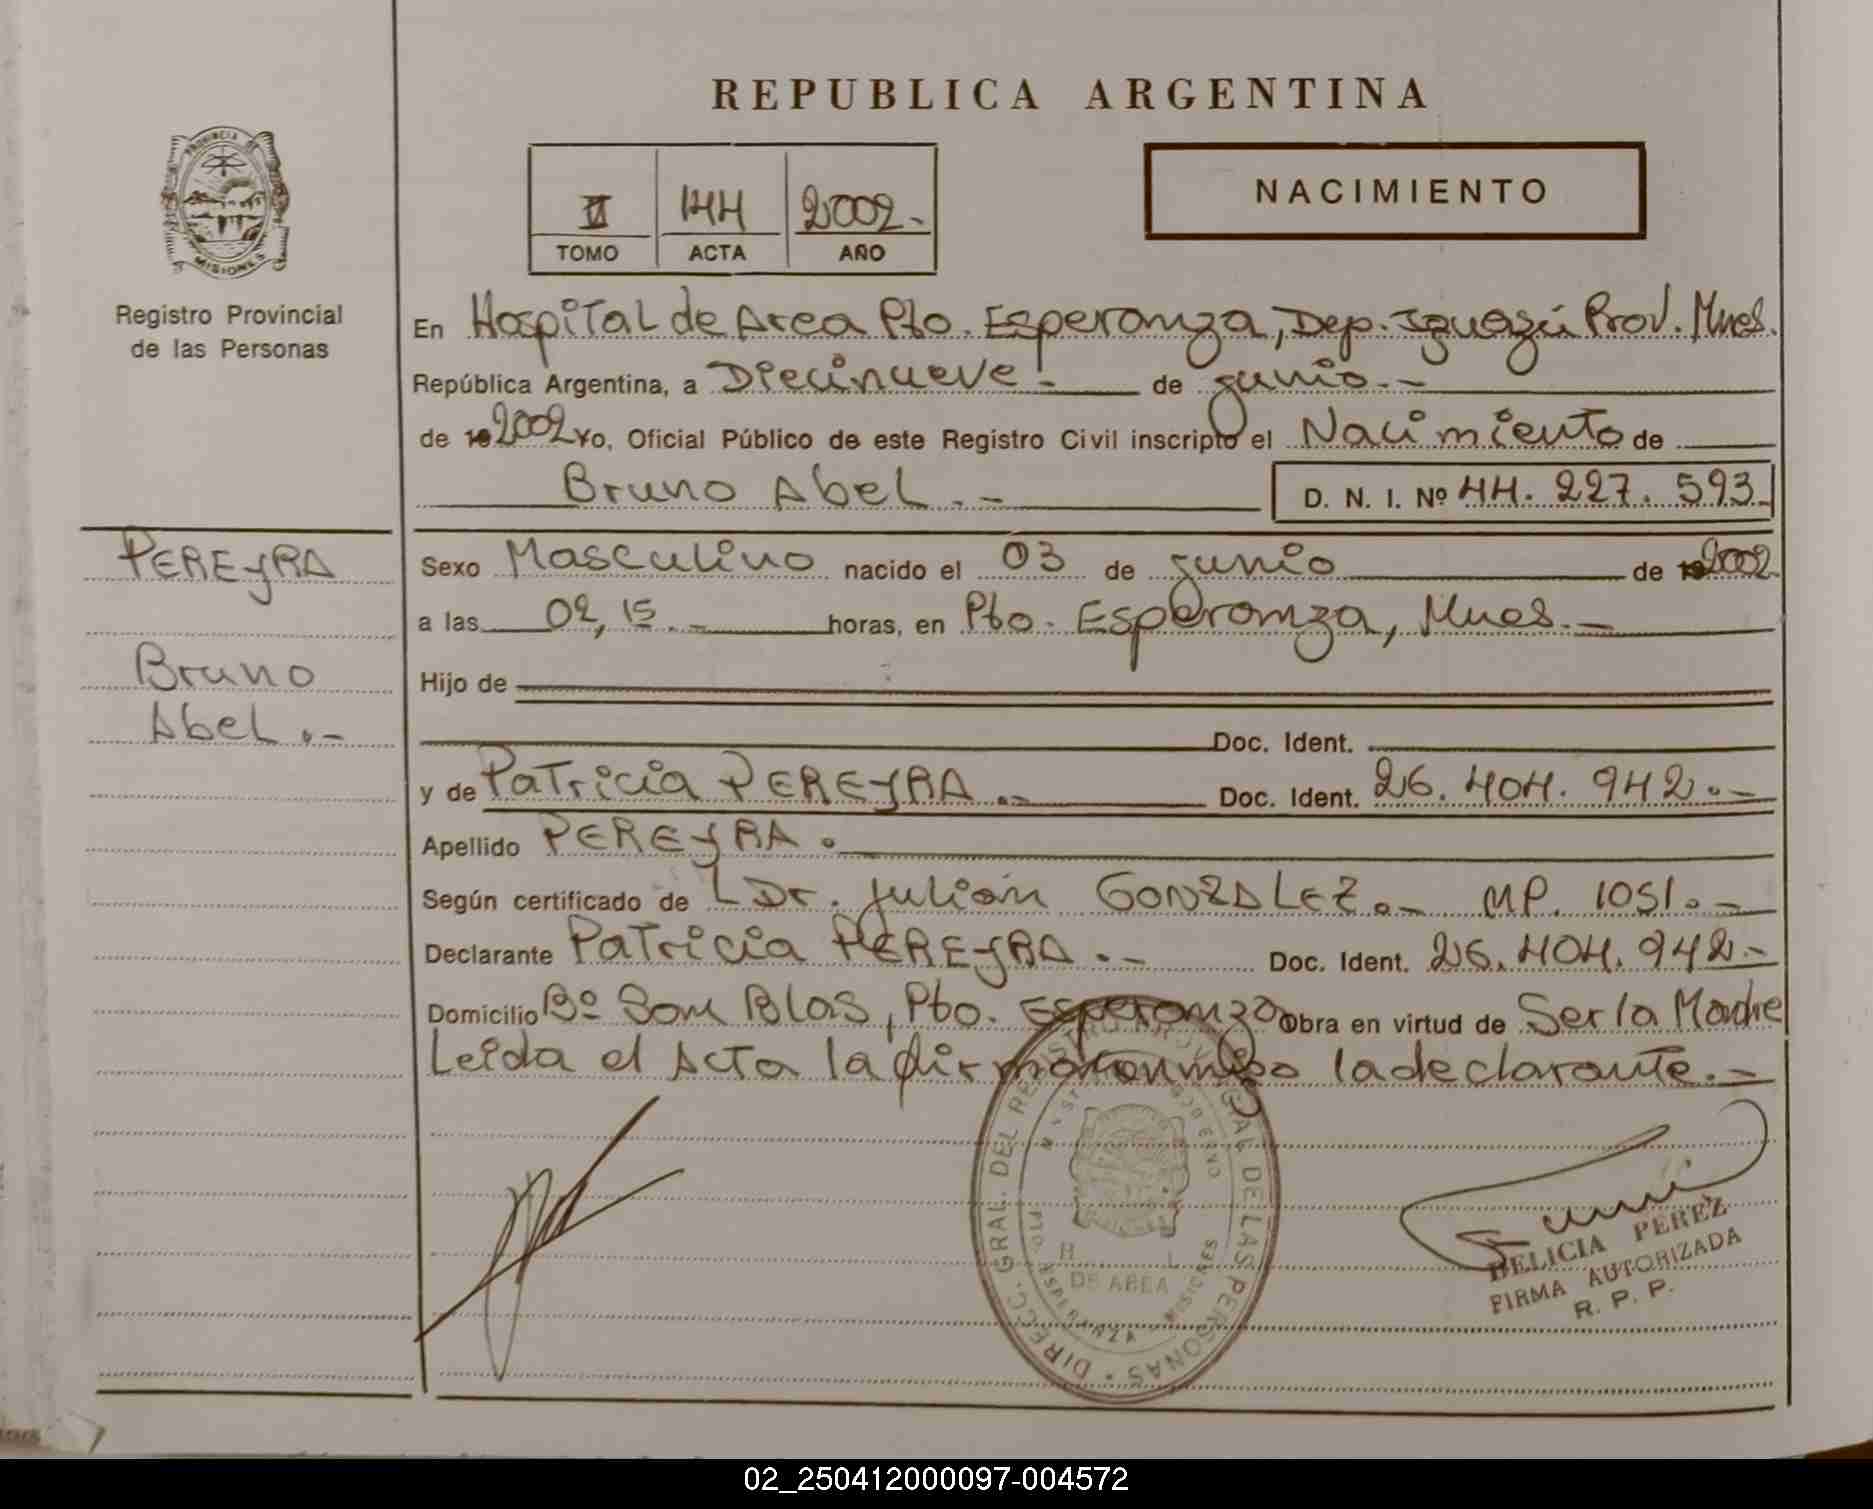 REPUBLICA ARGENTINA
PROVINCIA DE
MISIONES
Registro Provincial
de las Personas
II 144 2002.-
TOMO ACTA AÑO
NACIMIENTO
En Hospital de Area Pto. Esperanza, Dep. Iguazú Prov. Mnes.
República Argentina, a Diecinueve.- de junio.-
de 19 2002 Yo, Oficial Público de este Registro Civil inscripto el Nacimiento de
Bruno Abel.- D. N. I. Nº 44.227.593.-
PEREYRA
Bruno
Abel.-
Sexo Masculino nacido el 03 de junio de 19 2002.
a las 02,15.- horas, en Pto. Esperanza, Mnes.-
Hijo de
Doc. Ident.
y de Patricia PEREYRA.- Doc. Ident. 26.404.942.-
Apellido PEREYRA.
Según certificado de L Dr. Julián GONZALEZ.- MP. 1051.-
Declarante Patricia PEREYRA.- Doc. Ident. 26.404.942.-
Domicilio Bº San Blas, Pto. Esperanza Obra en virtud de Ser la Madre
Leida el Acta la firman conmigo la declarante.-
DIRECC. GRAL. DEL REGISTRO PROVINCIAL DE LAS PERSONAS
DE AREA
ESPERANZA - MISIONES
DELICIA PEREZ
FIRMA AUTORIZADA
R. P. P.
02_250412000097-004572